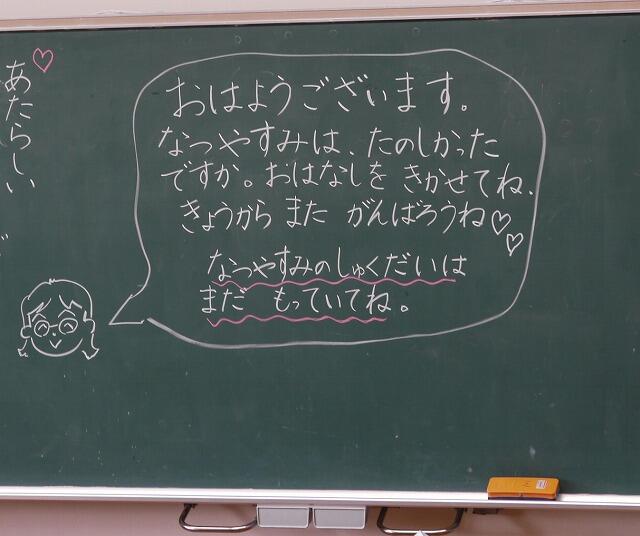 あたらしい
おはようございます。
なつやすみは、たのしかった
ですか。おはなしを きかせてね、
きょうから また がんばろうね♡♡
なつやすみのしゅくだいは
まだ もっていてね。